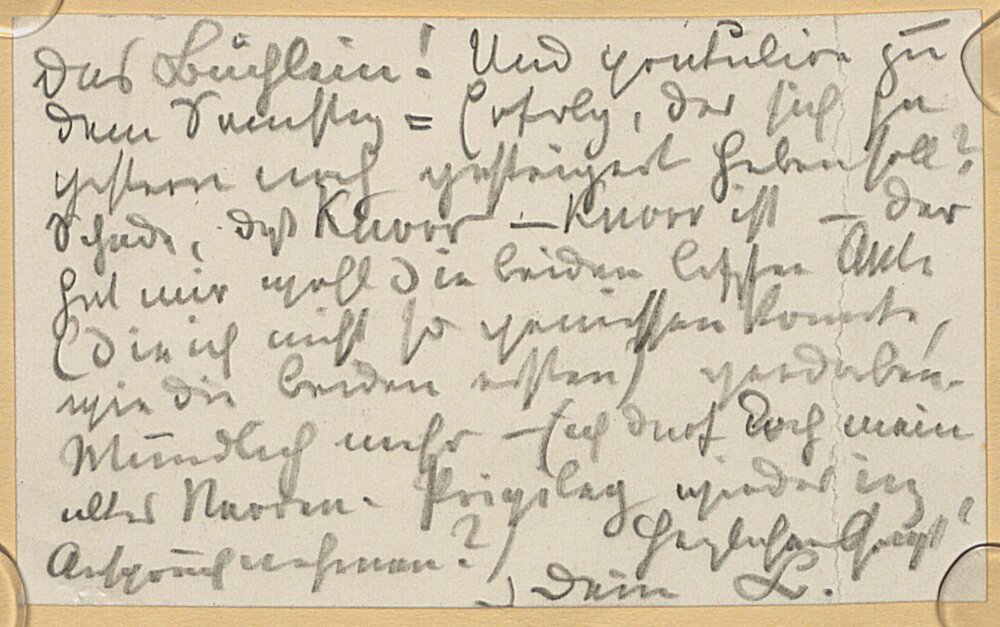 Das Büchlein! Und gratuliere zu
dem Samstag = Erfolg, der sich ja
gestern noch gesteigert haben soll?
Schade, daß Knorr – Knorr ist – der
hat mir wohl die beiden letzten Akte
(die ich nicht so genießen konnte,
wie die beiden ersten) verdorben.
Mündlich mehr – (ich darf doch mein
altes Narren-Privileg wieder in
Anspruch nehmen?)   Herzlichen Gruß!
Dein L.